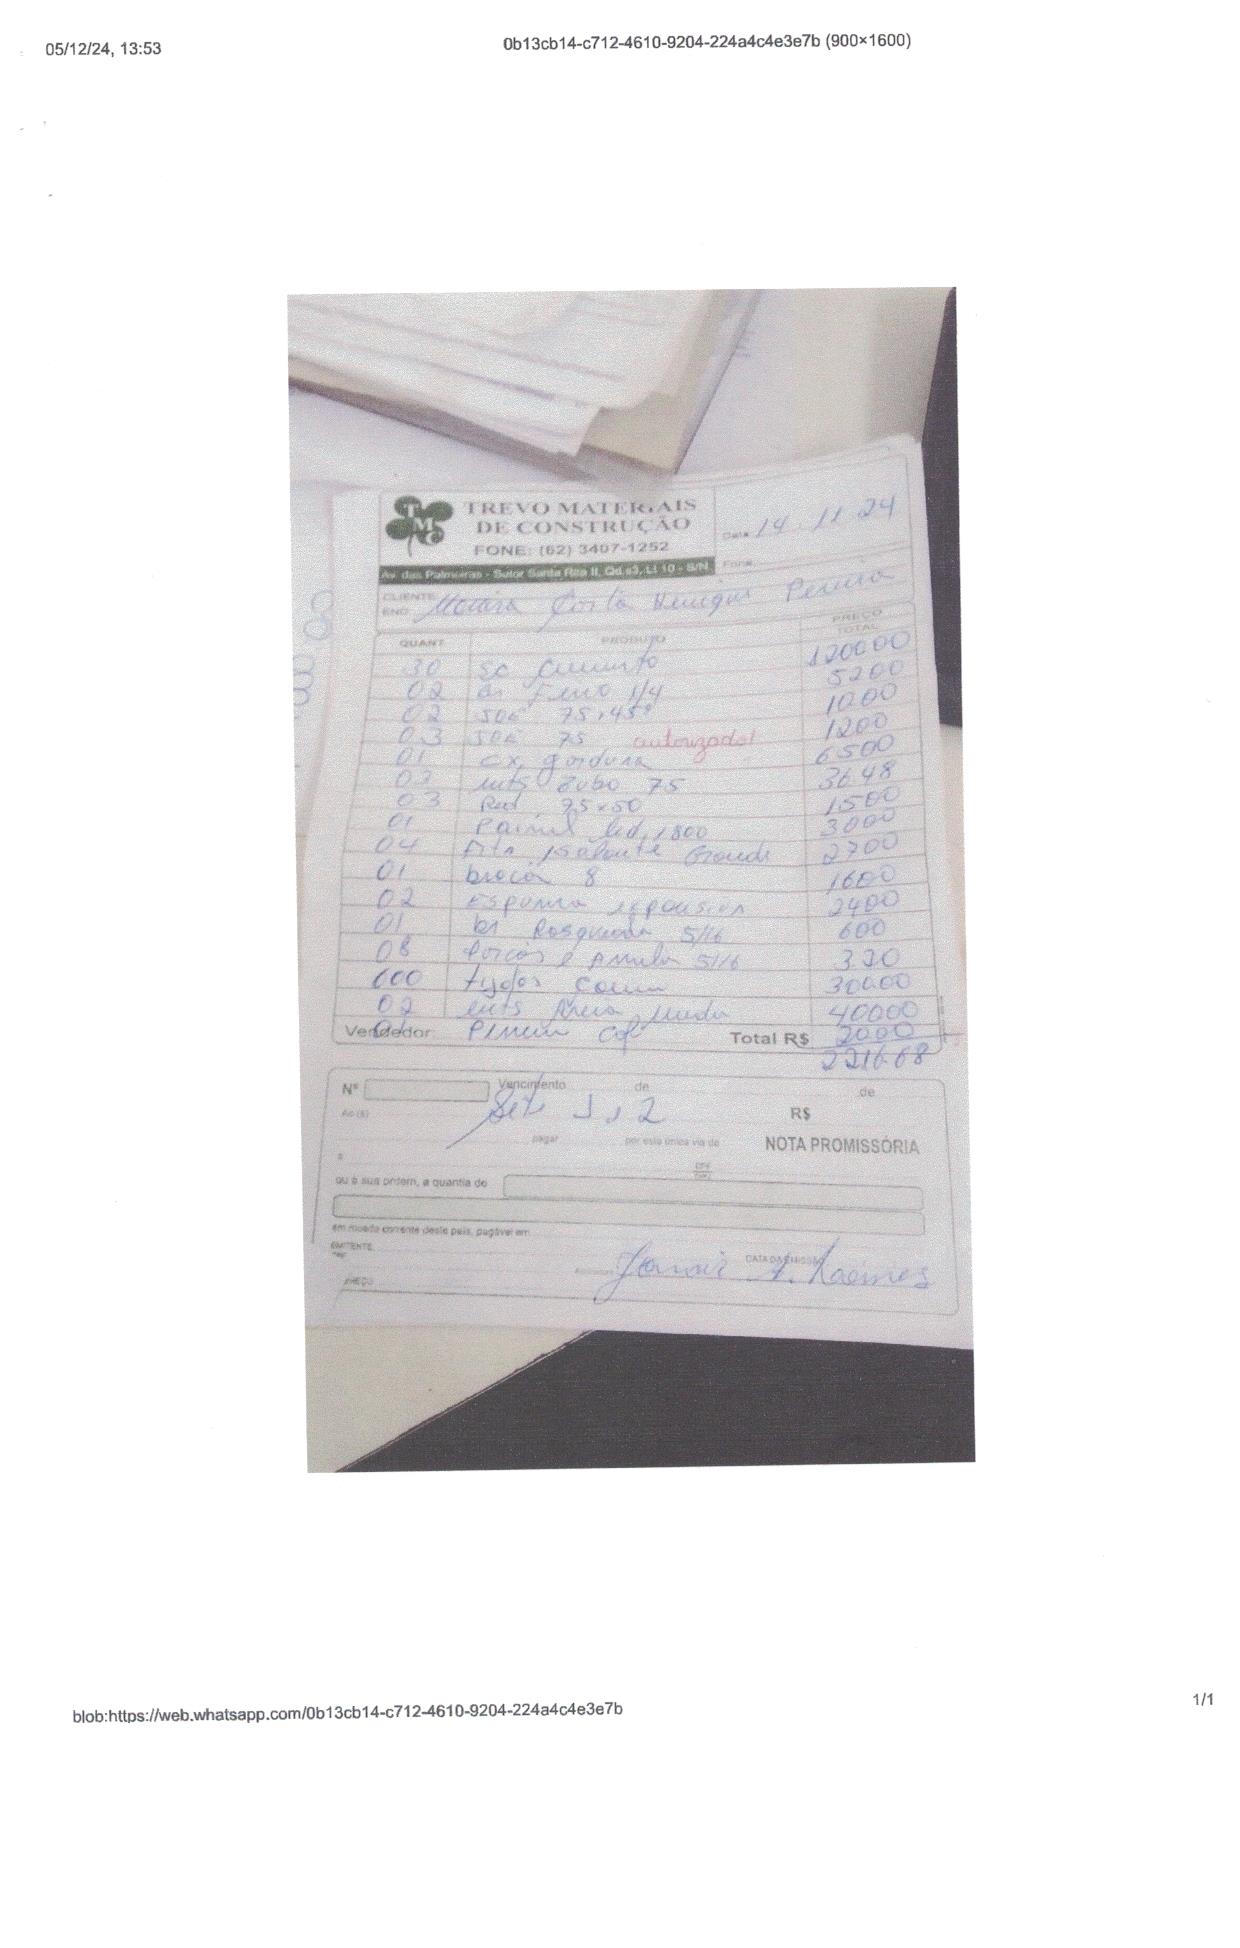 05/12/24, 13:53
0b13cb14-c712-4610-9204-224a4c4e3e7b (900×1600)
TMC
TREVO MATERIAIS
DE CONSTRUÇÃO
FONE: (62) 3407-1252
Av das Palmeiras - Setor Santa Rita II, Qd 63, Lt 10 - S/N
Data 14.11.24
Fone
CLIENTE
END. Costa Pereira
QUANT. PRODUTO PREÇO TOTAL
30 sc Cimento 120000
02 Ferro 1/4 5200
02 75x45° 1000
03 75 1200
autorizado!
01 cx gordura 6500
mts Tubo 75 3648
03 Red 75x50 1500
01 Painel led 1800 3000
04 Fita isolante Grande 2700
01 broca 8 1600
02 Espuma expansiva 2400
01 br Rosqueada 5/16 600
08 Porcas e Arruela 5/16 3.20
600 tijolos Comum 30000
02 mts Areia 40000
Vendedor: 2000
Total R$ 2216.68
Nº
Vencimento de de
Ao(s)
R$
pagar por esta única via de
NOTA PROMISSÓRIA
a
CPF
ou à sua ordem, a quantia de
em moeda corrente deste país, pagável em
EMITENTE
DATA DA EMISSÃO
blob:https://web.whatsapp.com/0b13cb14-c712-4610-9204-224a4c4e3e7b
1/1